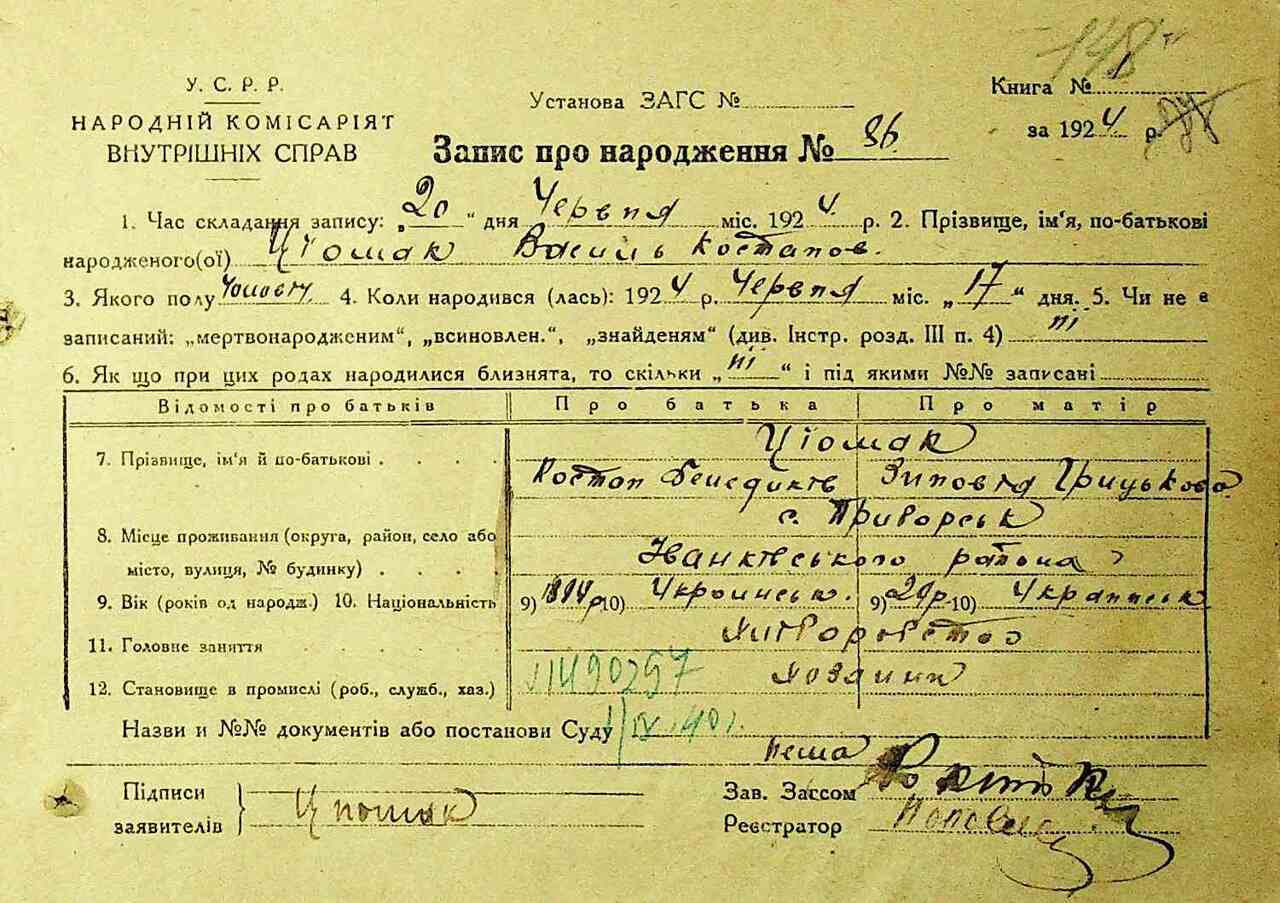 148
У. С. Р. Р.
НАРОДНІЙ КОМІСАРІЯТ
ВНУТРІШНІХ СПРАВ
Установа ЗАГС №
Книга № 1
за 1924 р.
Запис про народження № 86.
1. Час складання запису: „20“ дня Червня міс. 1924. р. 2. Прізвище, ім'я, по-батькові
народженого(ої) Цюмак Василь Костапов.
3. Якого полу 4. Коли народився (лась): 1924 р. Червня міс. „17“ дня. 5. Чи не є
записаний: „мертвонародженим“, „всиновлен.“, „знайденям“ (див. Інстр. розд. III п. 4) ні
6. Як що при цих родах народилися близнята, то скільки „ні“ і під якими №№ записані
Відомості про батьків Про батька Про матір
7. Прізвище, ім'я й по-батькові Цюмак
Костап Бенедиктів Зиновія Грицькова
8. Місце проживання (округа, район, село або с. Приборськ
місто, вулиця, № будинку) Іванківського района
9. Вік (років од народж.) 10. Національність 9) 10) Украинськ. 9) 20 р. 10) Украинськ
11. Головне заняття Хліборобство
12. Становище в промислі (роб., служб., хаз.) 1490297 Хозаин
Назви и №№ документів або постанови Суду IV 40
Підписи
заявителів Цюмак
Зав. Загсом
Реєстратор